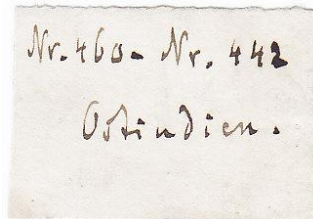 Nr. 460- Nr. 442
Ostindien.